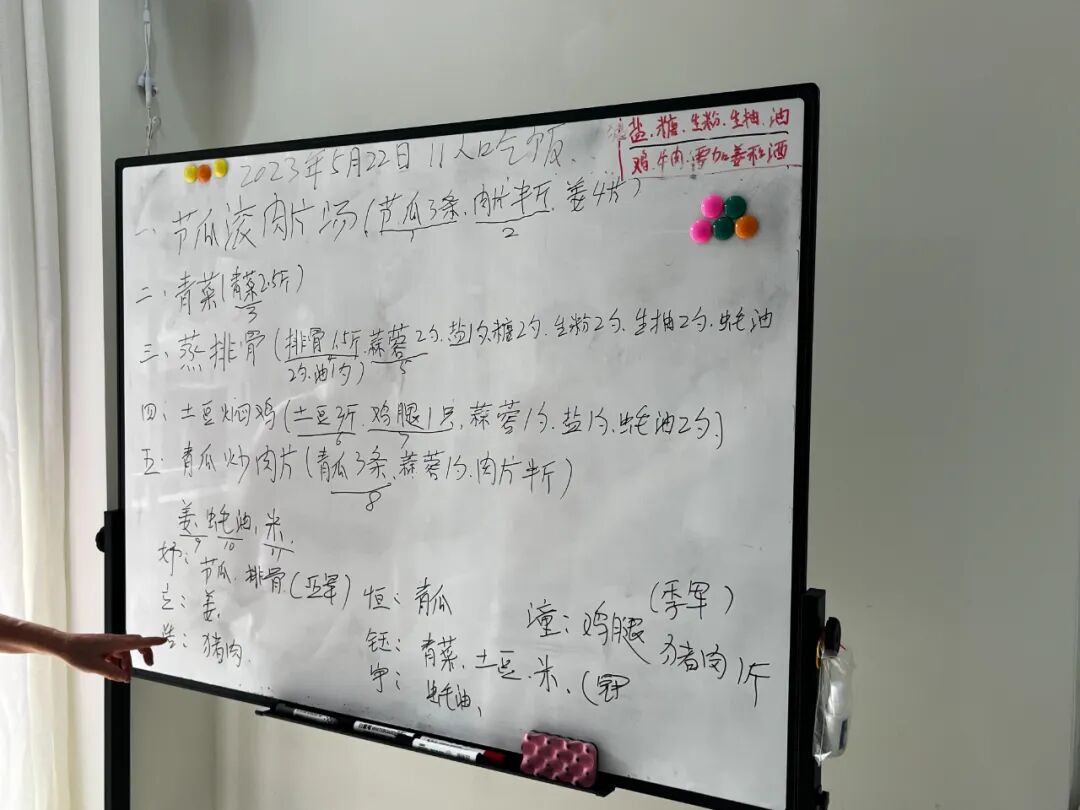 盐、糖、生粉、生抽、油
鸡、牛肉、需加姜和酒
2023年5月22日 11人吃饭
一、节瓜滚肉片汤(节瓜3条、肉片半斤、姜4片)
1 2
二、青菜(青菜2.5斤)
3
三、蒸排骨(排骨1.5斤、蒜蓉2勺、盐1勺、糖2勺、生粉2勺、生抽2勺、蚝油
2勺、油1勺)
4 5
四、土豆焖鸡(土豆3斤、鸡腿1只、蒜蓉1勺、盐1勺、蚝油2勺)
6 7
五、青瓜炒肉片(青瓜3条、蒜蓉1勺、肉片半斤)
8
姜、蚝油、米
9 10 11
妤:节瓜、排骨(亚军)
姜
浩:猪肉
恒:青瓜
钰:青菜、土豆、米、(冠
宇:蚝油、
潼:鸡腿(季军)
猪肉1斤